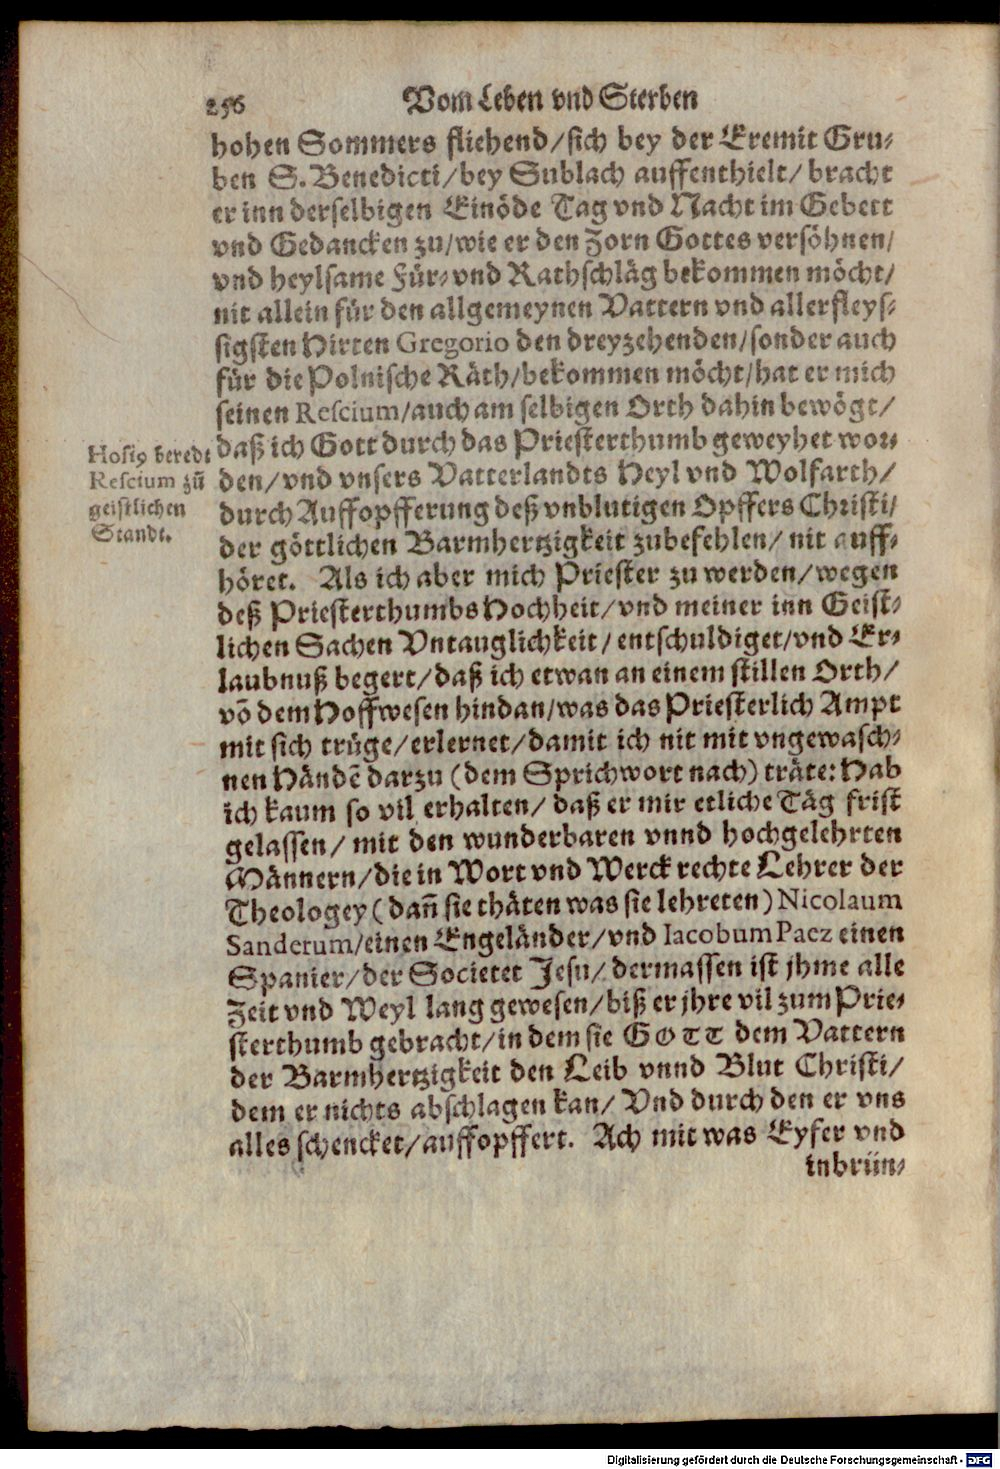 256 Vom Leben vnd Sterben
hohen Sommers fliehend/sich bey der Eremit Gru-
ben S. Benedicti/bey Sublach auffenthielt/ bracht
er inn derselbigen Einöde Tag vnd Nacht im Gebett
vnd Gedancken zu/wie er den Zorn Gottes versöhnen/
vnd heylsame Für- vnd Rathschläg bekommen möcht/
nit allein für den allgemeynen Vattern vnd allerfleys-
sigsten Hirten Gregorio den dreyzehenden/sonder auch
für die Polnische Räth/bekommen möcht/hat er mich
seinen Rescium/auch am selbigen Orth dahin bewögt/
daß ich Gott durch das Priesterthumb geweyhet wor-
den/vnd vnsers Vatterlandts Heyl vnd Wolfarth/
durch Auffopfferung deß vnblutigen Opffers Christi/
der göttlichen Barmhertzigkeit zubefehlen/ nit auff-
höret. Als ich aber mich Priester zu werden/wegen
deß Priesterthumbs Hochheit/vnd meiner inn Geist-
lichen Sachen Vntauglichkeit/entschuldiget/vnd Er-
laubnuß begert/daß ich etwan an einem stillen Orth/
võ dem Hoffwesen hindan/was das Priesterlich Ampt
mit sich trüge/erlernet/damit ich nit mit vngewasch-
nen Händẽ darzu (dem Sprichwort nach) träte: Hab
ich kaum so vil erhalten/ daß er mir etliche Täg frist
gelassen/ mit den wunderbaren vnnd hochgelehrten
Männern/die in Wort vnd Werck rechte Lehrer der
Theologey (dañ sie thäten was sie lehreten) Nicolaum
Sanderum/einen Engeländer/vnd Iacobum Paez einen
Spanier/der Societet Jesu/ dermassen ist jhme alle
Zeit vnd Weyl lang gewesen/biß er jhre vil zum Prie-
sterthumb gebracht/in dem sie GOTT dem Vattern
der Barmhertzigkeit den Leib vnnd Blut Christi/
dem er nichts abschlagen kan/ Vnd durch den er vns
alles schencket/auffopffert. Ach mit was Eyfer vnd
inbrün-
Hosiꝯ beredt
Rescium zũ
geistlichen
Standt.
Digitalisierung gefördert durch die Deutsche Forschungsgemeinschaft - DFG